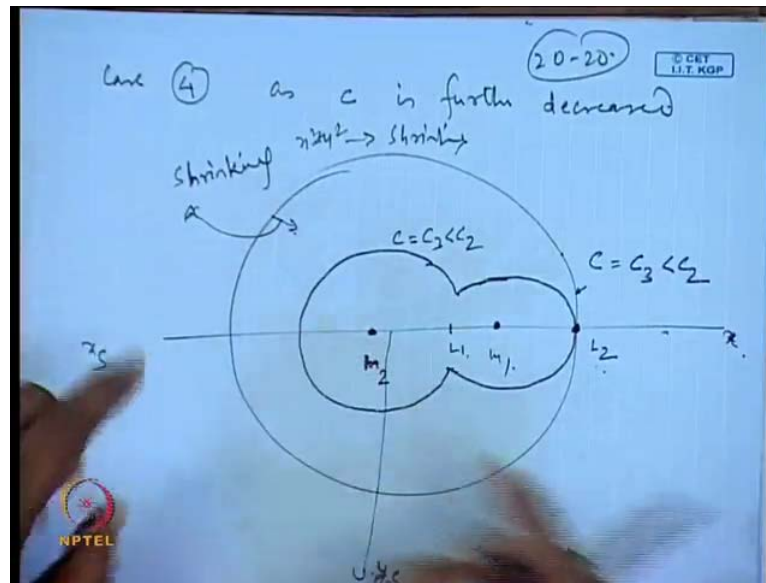 20-20.
© CET
I.I.T. KGP
Case 4 as C is further decreased
x²+y² → Shrinking
Shrinking
C = C₃ < C₂
C = C₃ < C₂
m₂
L1.
m₁.
L₂
x.
NPTEL